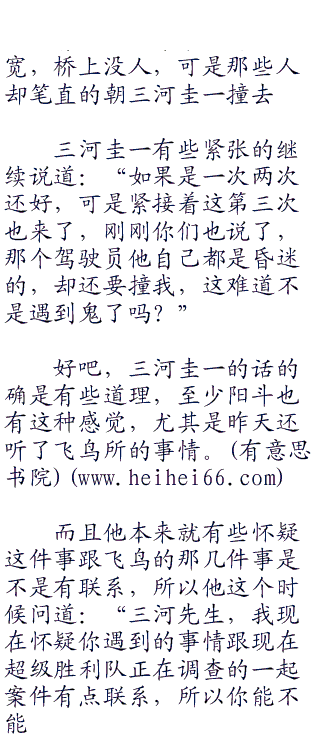 宽，桥上没人，可是那些人
却笔直的朝三河圭一撞去
三河圭一有些紧张的继
续说道：“如果是一次两次
还好，可是紧接着这第三次
也来了，刚刚你们也说了，
那个驾驶员他自己都是昏迷
的，却还要撞我，这难道不
是遇到鬼了吗？”
好吧，三河圭一的话的
确是有些道理，至少阳斗也
有这种感觉，尤其是昨天还
听了飞鸟所的事情。(有意思
书院)(www.heihei66.com)
而且他本来就有些怀疑
这件事跟飞鸟的那几件事是
不是有联系，所以他这个时
候问道：“三河先生，我现
在怀疑你遇到的事情跟现在
超级胜利队正在调查的一起
案件有点联系，所以你能不
能